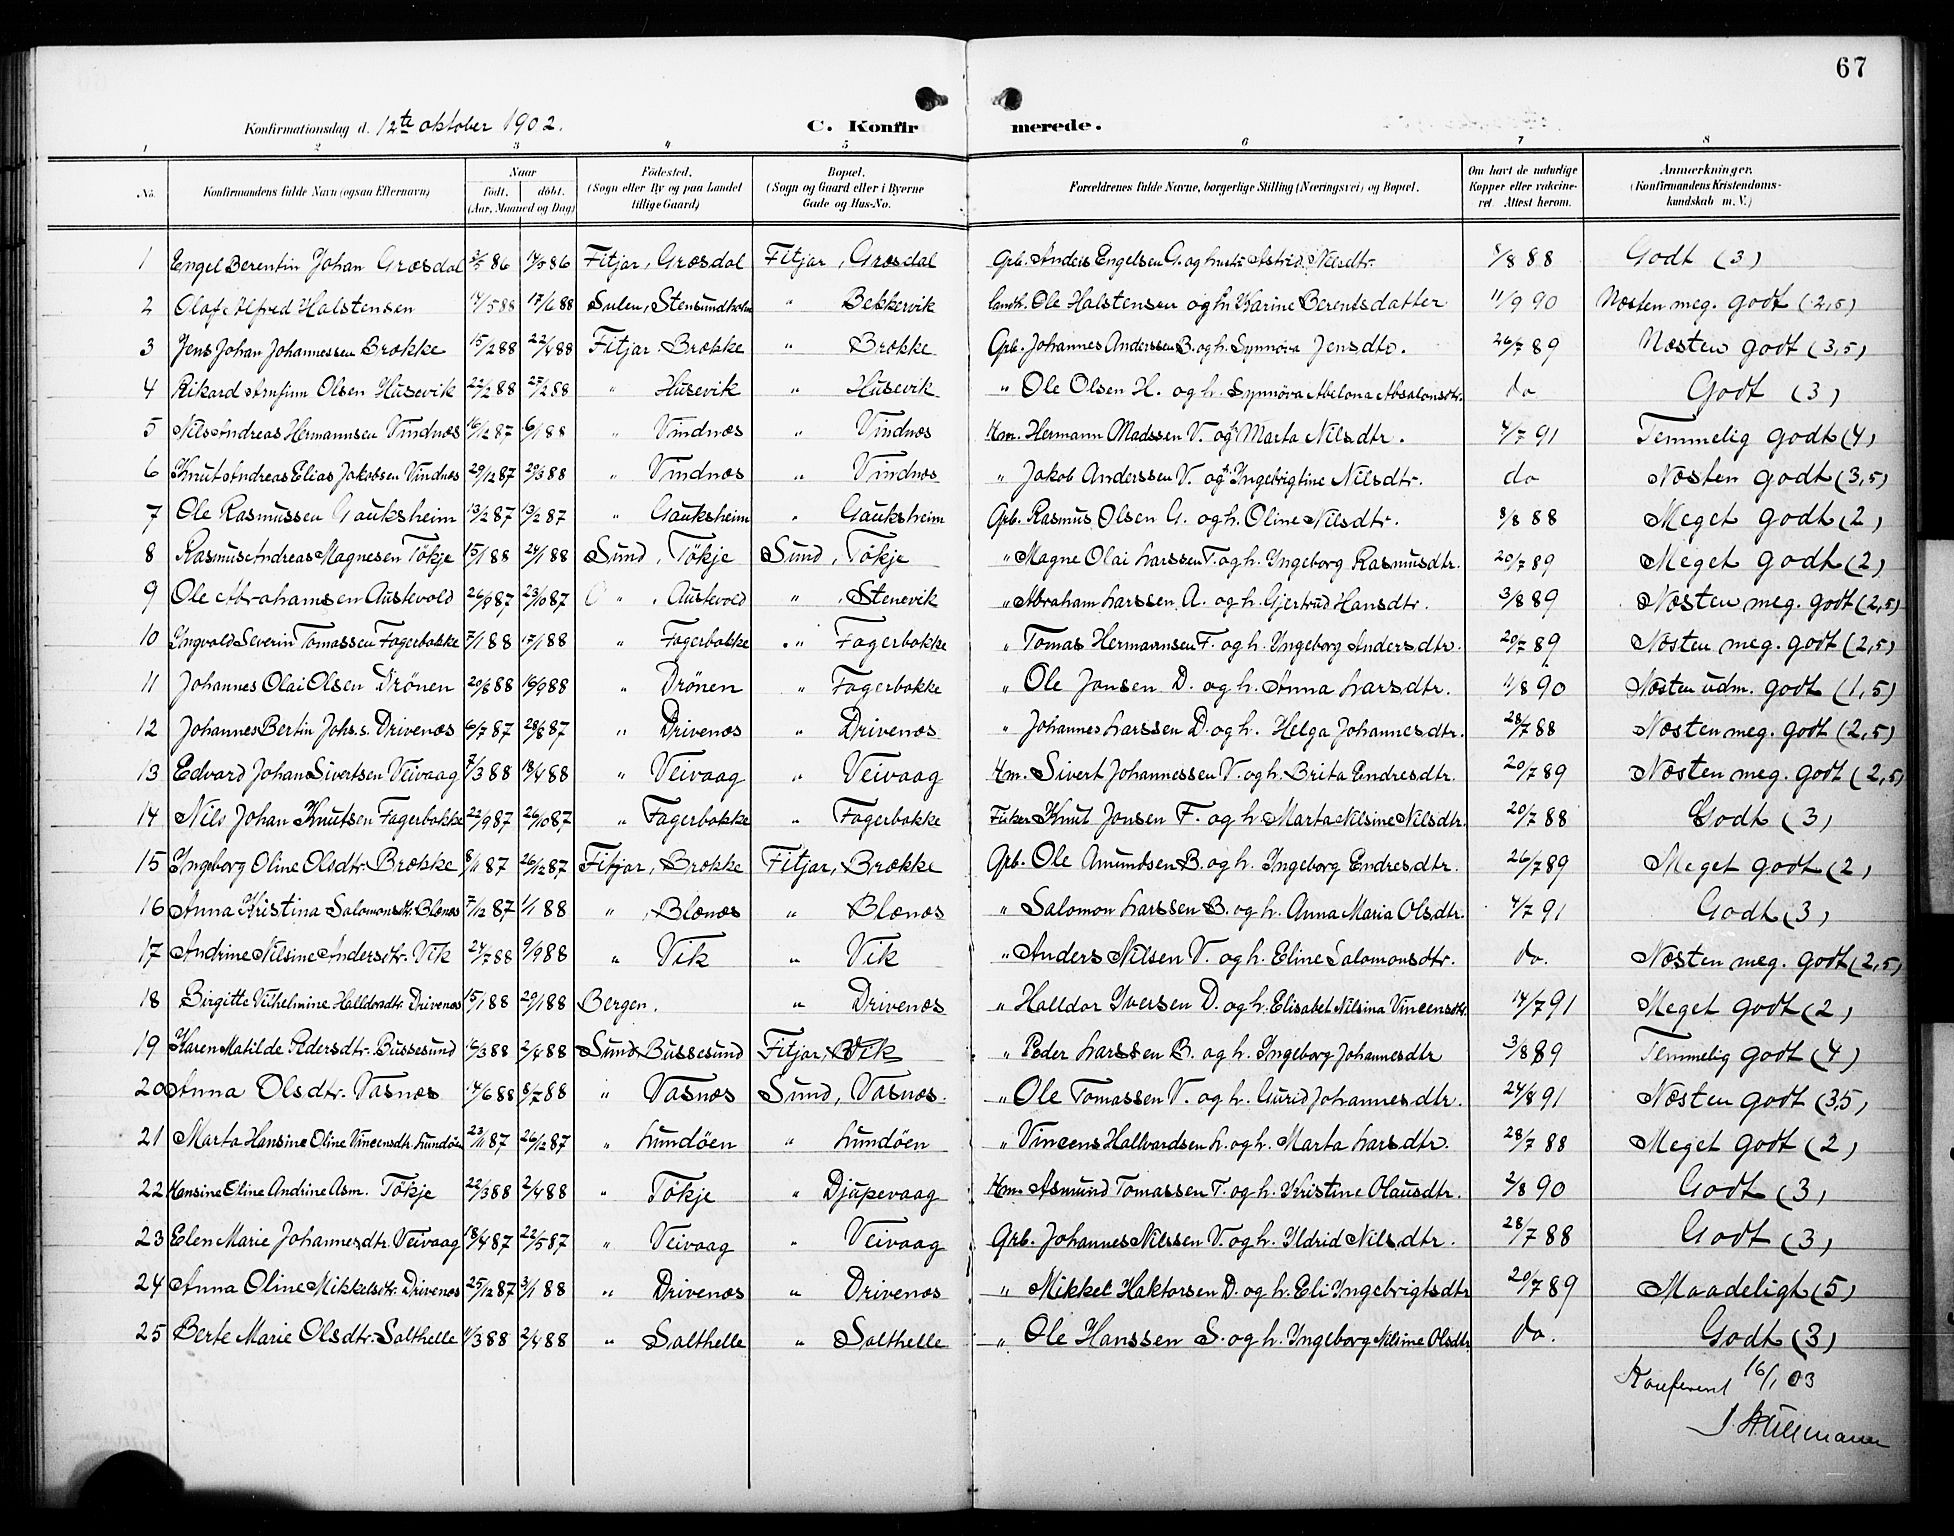 67
Konfirmationsdag d. 12te oktober 1902. C. Konfirmerede.
1 2 3 4 5 6 7 8
No. Konfirmandens fulde Navn (ogsaa Efternavn) Naar født. døbt. (Aar, Maaned og Dag) Fødested. (Sogn eller By og paa Landet tillige Gaard) Bopæl. (Sogn og Gaard eller i Byerne Gade og Hus-No. Forældrenes fulde Navne, borgerlige Stilling (Næringsvei) og Bopæl. Om havt de naturlige Kopper eller vakcineret. Attest herom. Anmærkninger. (Konfirmandens Kristendomskundskab m. V.)
1 Engel Berentin Johan Græsdal 86 86 Fitjar, Græsdal Fitjar, Græsdal Grb. Anders Engelsen G. og hustr. Astrid Nilsdtr. 8/8 88 Godt (3)
2 Olaf Alfred Halstensen 14/5 88 17/6 88 Sulen, Stensundholm " Bekkervik Ole Halstensen og h. Karine Berentsdatter 11/9 90 Næsten meg. godt (2,5)
3 Jens Johan Johannessen Brække 15/2 88 22/4 88 Fitjar Brække " Brække Grb. Johannes Anderssen B. og h. Synnøva Jensdtr. 26/7 89 Næsten godt (3,5)
4 Rikard Arnfinn Olsen Husevik 22/2 88 27/2 88 " Husevik " Husevik " Ole Olsen H. og h. Synnøva Abelona Absalonsdtr. do Godt (3)
5 Nils Andreas Hermannsen Vindnæs 16/12 87 6/1 88 " Vindnæs " Vindnæs Hm. Hermann Madssen V. og h. Marta Nilsdtr. 4/7 91 Temmelig godt (4)
6 Knut Andreas Elias Jakobsen Vindnæs 29/12 87 29/3 88 " Vindnæs " Vindnæs " Jakob Anderssen V. og h. Ingebrigtine Nilsdtr. do Næsten godt (3,5)
7 Ole Rasmussen Gauksheim 13/2 87 13/2 87 " Gauksheim " Gauksheim Grb. Rasmus Olsen G. og h. Oline Nilsdtr. 8/8 88 Meget godt (2)
8 Rasmus Andreas Magnesen Tökje 15/1 88 24/1 88 Sund, Tökje Sund, Tökje " Magne Olai Larssen T. og h. Ingeborg Rasmusdtr. 20/7 89 Meget godt (2)
9 Ole Abrahamsen Austevold 26/9 87 23/10 87 " , Austevold " , Stenevik " Abraham Larssen A. og h. Gjertrud Hansdtr. 3/8 89 Næsten meg. godt (2,5)
10 Ingvald Severin Tomassen Fagerbakke 7/1 88 17/1 88 " Fagerbakke " Fagerbakke " Tomas Hermannsen F. og h. Ingeborg Andersdtr. 20/7 89 Næsten meg. godt (2,5)
11 Johannes Olai Olsen Drönen 20/8 88 16/9 88 " Drönen " Fagerbakke " Ole Jansen D. og h. Anna Larsdtr. 4/8 90 Næsten udm. godt (1,5)
12 Johannes Bertin Johs.s. Drivenæs 6/7 87 28/8 87 " Drivenæs " Drivenæs " Johannes Larssen D. og h. Helga Johannesdtr. 28/7 88 Næsten meg. godt (2,5)
13 Edvard Johan Sivertsen Veivaag 7/3 88 18/4 88 " Veivaag " Veivaag Hm. Sivert Johannessen V. og h. Brita Endresdtr. 20/7 89 Næsten meg. godt (2,5)
14 Nils Johan Knutsen Fagerbakke 22/9 87 26/10 87 " Fagerbakke " Fagerbakke Fisker Knut Jansen F. og h. Marta Nilsine Nilsdtr. 20/7 88 Godt (3)
15 Ingeborg Oline Olsdtr. Brække 8/11 87 26/12 87 Fitjar, Brække Fitjar, Brække Grb. Ole Amundsen B. og h. Ingeborg Endresdtr. 26/7 89 Meget godt (2)
16 Anna Kristina Salomonsdtr. Blænæs 7/12 87 1/1 88 " , Blænæs " Blænæs " Salomon Larssen B. og h. Anna Maria Olsdtr. 4/7 91 Godt (3)
17 Andrine Nilsine Andersdtr. Vik 24/7 88 9/9 88 " Vik " Vik " Anders Nilsen V. og h. Eline Salomonsdtr. do. Næsten meg. godt (2,5)
18 Birgitte Vilhelmine Halldorsdtr. Drivenæs 15/1 88 29/1 88 Bergen. " Drivenæs " Halldor Iversen D. og h. Elisabet Nilsina Vincensdtr. 14/7 91 Meget godt (2)
19 Karen Matilde Pedersdtr. Bussesund 16/3 88 2/4 88 Sund Bussesund Fitjar, Vik " Peder Larssen B. og h. Ingeborg Johannesdtr 3/8 89 Temmelig godt (4)
20 Anna Olsdtr. Vasnæs 14/6 88 8/7 88 " Vasnæs Sund, Vasnæs. " Ole Tomassen V. og h. Gurid Johannesdtr. 24/8 91 Næsten godt (3,5)
21 Marta Hansine Oline Vincensdtr. Lundöen 23/11 87 26/12 87 " Lundöen " Lundöen " Vincens Hallvardsen L. og h. Marta Larsdtr. 28/7 88 Meget godt (2)
22 Hansine Eline Andrine Asm. Tökje 22/3 88 2/4 88 " Tökje " Djupevaag Hm. Asmund Tomassen T. og h. Kristine Olausdtr. 2/8 90 Godt (3)
23 Elen Marie Johannesdtr. Veivaag 18/4 87 22/5 87 " Veivaag " Veivaag Grb. Johannes Nilssen V. og h. Ildrid Nilsdtr. 28/7 88 Godt (3)
24 Anna Oline Mikkelsdtr. Drivenæs 25/12 87 3/1 88 " Drivenæs " Drivenæs " Mikkel Haktorsen D. og h. Eli Ingebrigtsdtr 20/7 89 Maadeligt (5)
25 Berte Marie Olsdtr. Salthelle 11/3 88 2/4 88 " Salthelle " Salthelle " Ole Hanssen S. og h. Ingeborg Nilsine Olsdtr. do. Godt (3)
Konferert 16/1 03